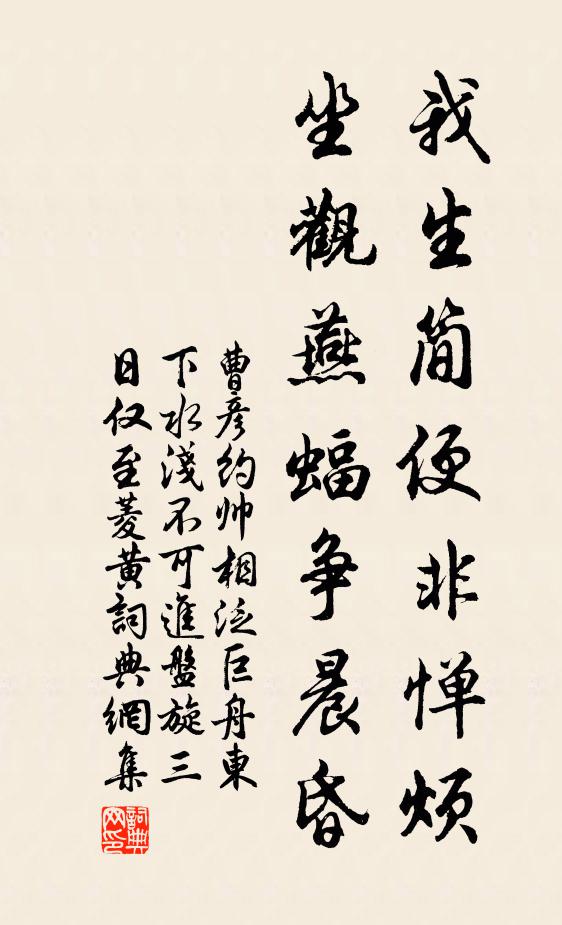 我生简便非惮烦
坐觀燕蝠争晨昏
曹彦约帅相泛巨舟東
下水淺不可進盤旋三
日仅至菱黄詞典網集
詞典网印